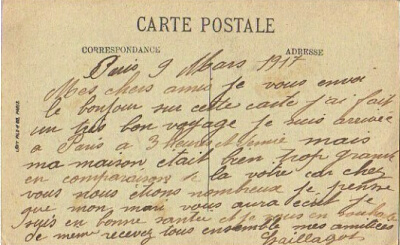 CARTE POSTALE
CORRESPONDANCE
ADRESSE
Paris 9 Mars 1917
Mes chers amis je vous envoi
le bonjour sur cette carte j'ai fait
un très bon voyage je suis arrivée
a Paris a 3 heures et demie mais
ma maison était bien trop grande
en comparaison de la votre car chez
vous nous étions nombreux je pense
que mon mari vous aura écrit je
suis en bonne santé et je vous en souhaite
de meme recevez tous ensemble mes amitiées